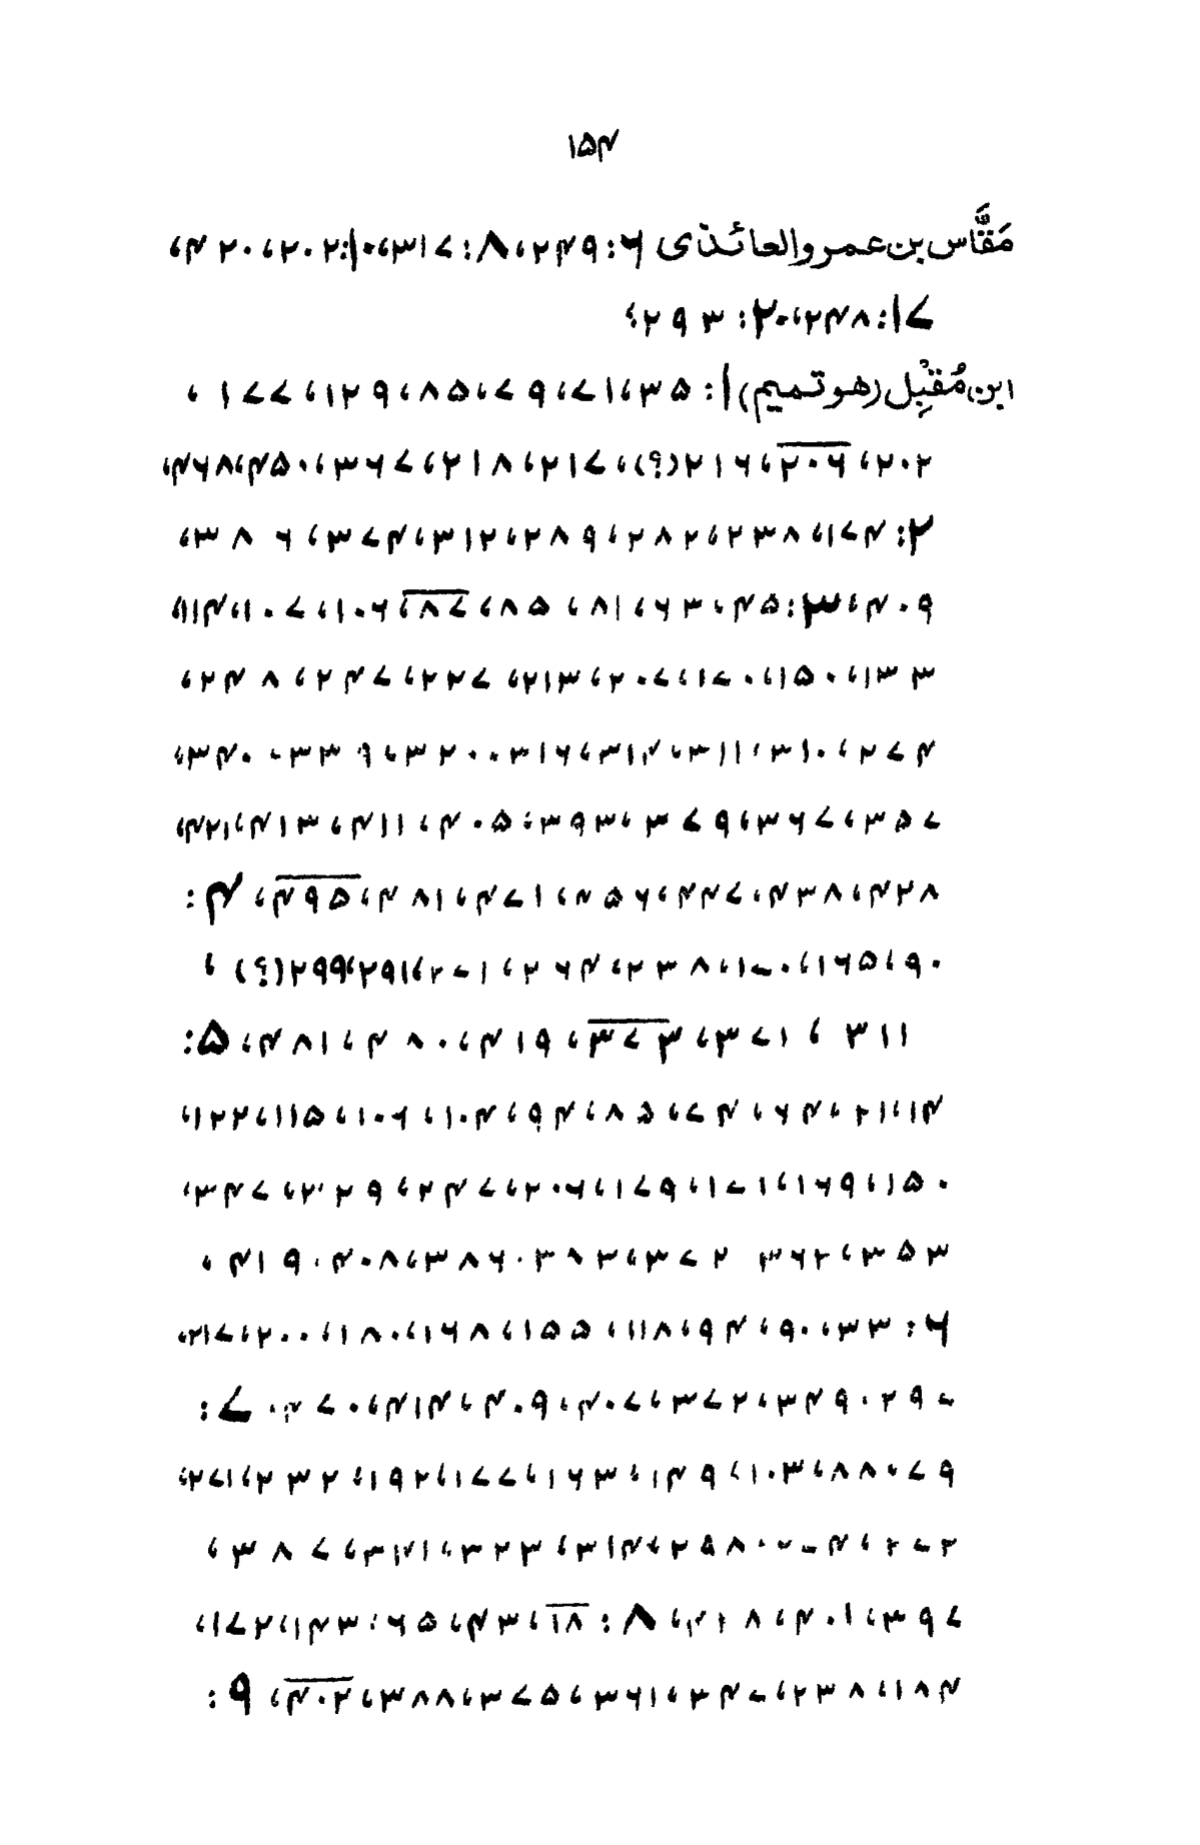 ۱۵۴
مَقَّاس بن عمرو العائذی ۶: ۲۴۹، ۸: ۳۱۷، ۱۰: ۲۰۲، ۴۲۰،
۱۷: ۲۴۸، ۲۰: ۲۹۳؛
ابن مُقبِل (هو تمیم) ۱: ۳۵، ۷۱، ۷۹، ۸۵، ۱۲۹، ۱۷۷،
۲۰۲، ۲۰۶، ۲۱۶(؟)، ۲۱۷، ۲۱۸، ۳۶۷، ۴۵۰، ۴۶۸،
۲: ۱۷۴، ۲۳۸، ۲۸۲، ۲۸۹، ۳۱۲، ۳۷۴، ۳۸۶،
۴۰۹، ۳: ۴۵، ۶۳، ۸۱، ۸۵، ۸۷، ۱۰۶، ۱۰۷، ۱۱۴،
۱۳۳، ۱۵۰، ۱۷۰، ۲۰۷، ۲۱۳، ۲۲۷، ۲۴۷، ۲۴۸،
۲۷۴، ۳۱۰، ۳۱۱، ۳۱۴، ۳۱۶، ۳۲۰، ۳۳۹، ۳۴۰،
۳۵۷، ۳۶۷، ۳۷۹، ۳۹۳، ۴۰۵، ۴۱۱، ۴۱۳، ۴۲۱،
۴۲۸، ۴۳۸، ۴۴۷، ۴۵۶، ۴۷۱، ۴۸۱، ۴۹۵، ۴:
۹۰، ۱۶۵، ۱۷۰، ۲۳۸، ۲۶۴، ۲۷۱، ۲۹۱، ۲۹۹(؟)،
۳۱۱، ۳۷۱، ۳۷۳، ۴۱۹، ۴۸۰، ۴۸۱، ۵:
۱۴، ۲۱، ۶۴، ۷۴، ۸۵، ۹۴، ۱۰۴، ۱۰۶، ۱۱۵، ۱۲۲،
۱۵۰، ۱۶۹، ۱۷۱، ۱۷۹، ۲۰۶، ۲۴۷، ۳۴۷،
۳۵۳، ۳۶۲، ۳۷۲، ۳۸۶، ۴۰۸، ۴۱۹،
۶: ۳۳، ۹۰، ۹۴، ۱۱۸، ۱۵۵، ۱۶۸، ۱۸۰، ۲۰۰، ۲۱۷،
۲۹۷، ۳۴۹، ۳۷۲، ۴۰۷، ۴۰۹، ۴۱۴، ۴۷۰، ۷:
۷۹، ۸۸، ۱۰۳، ۱۴۹، ۱۶۳، ۱۷۷، ۱۹۲، ۲۳۲، ۲۷۱،
۲۷۲، ۲۷۴، ۳۱۴، ۳۲۳، ۳۴۱، ۳۸۷،
۳۹۷، ۴۰۱، ۴۲۸، ۸: ۱۸، ۴۳، ۶۵، ۱۴۳، ۱۷۲،
۱۸۴، ۲۳۸، ۳۴۷، ۳۶۱، ۳۷۵، ۳۸۸، ۴۰۲، ۹: